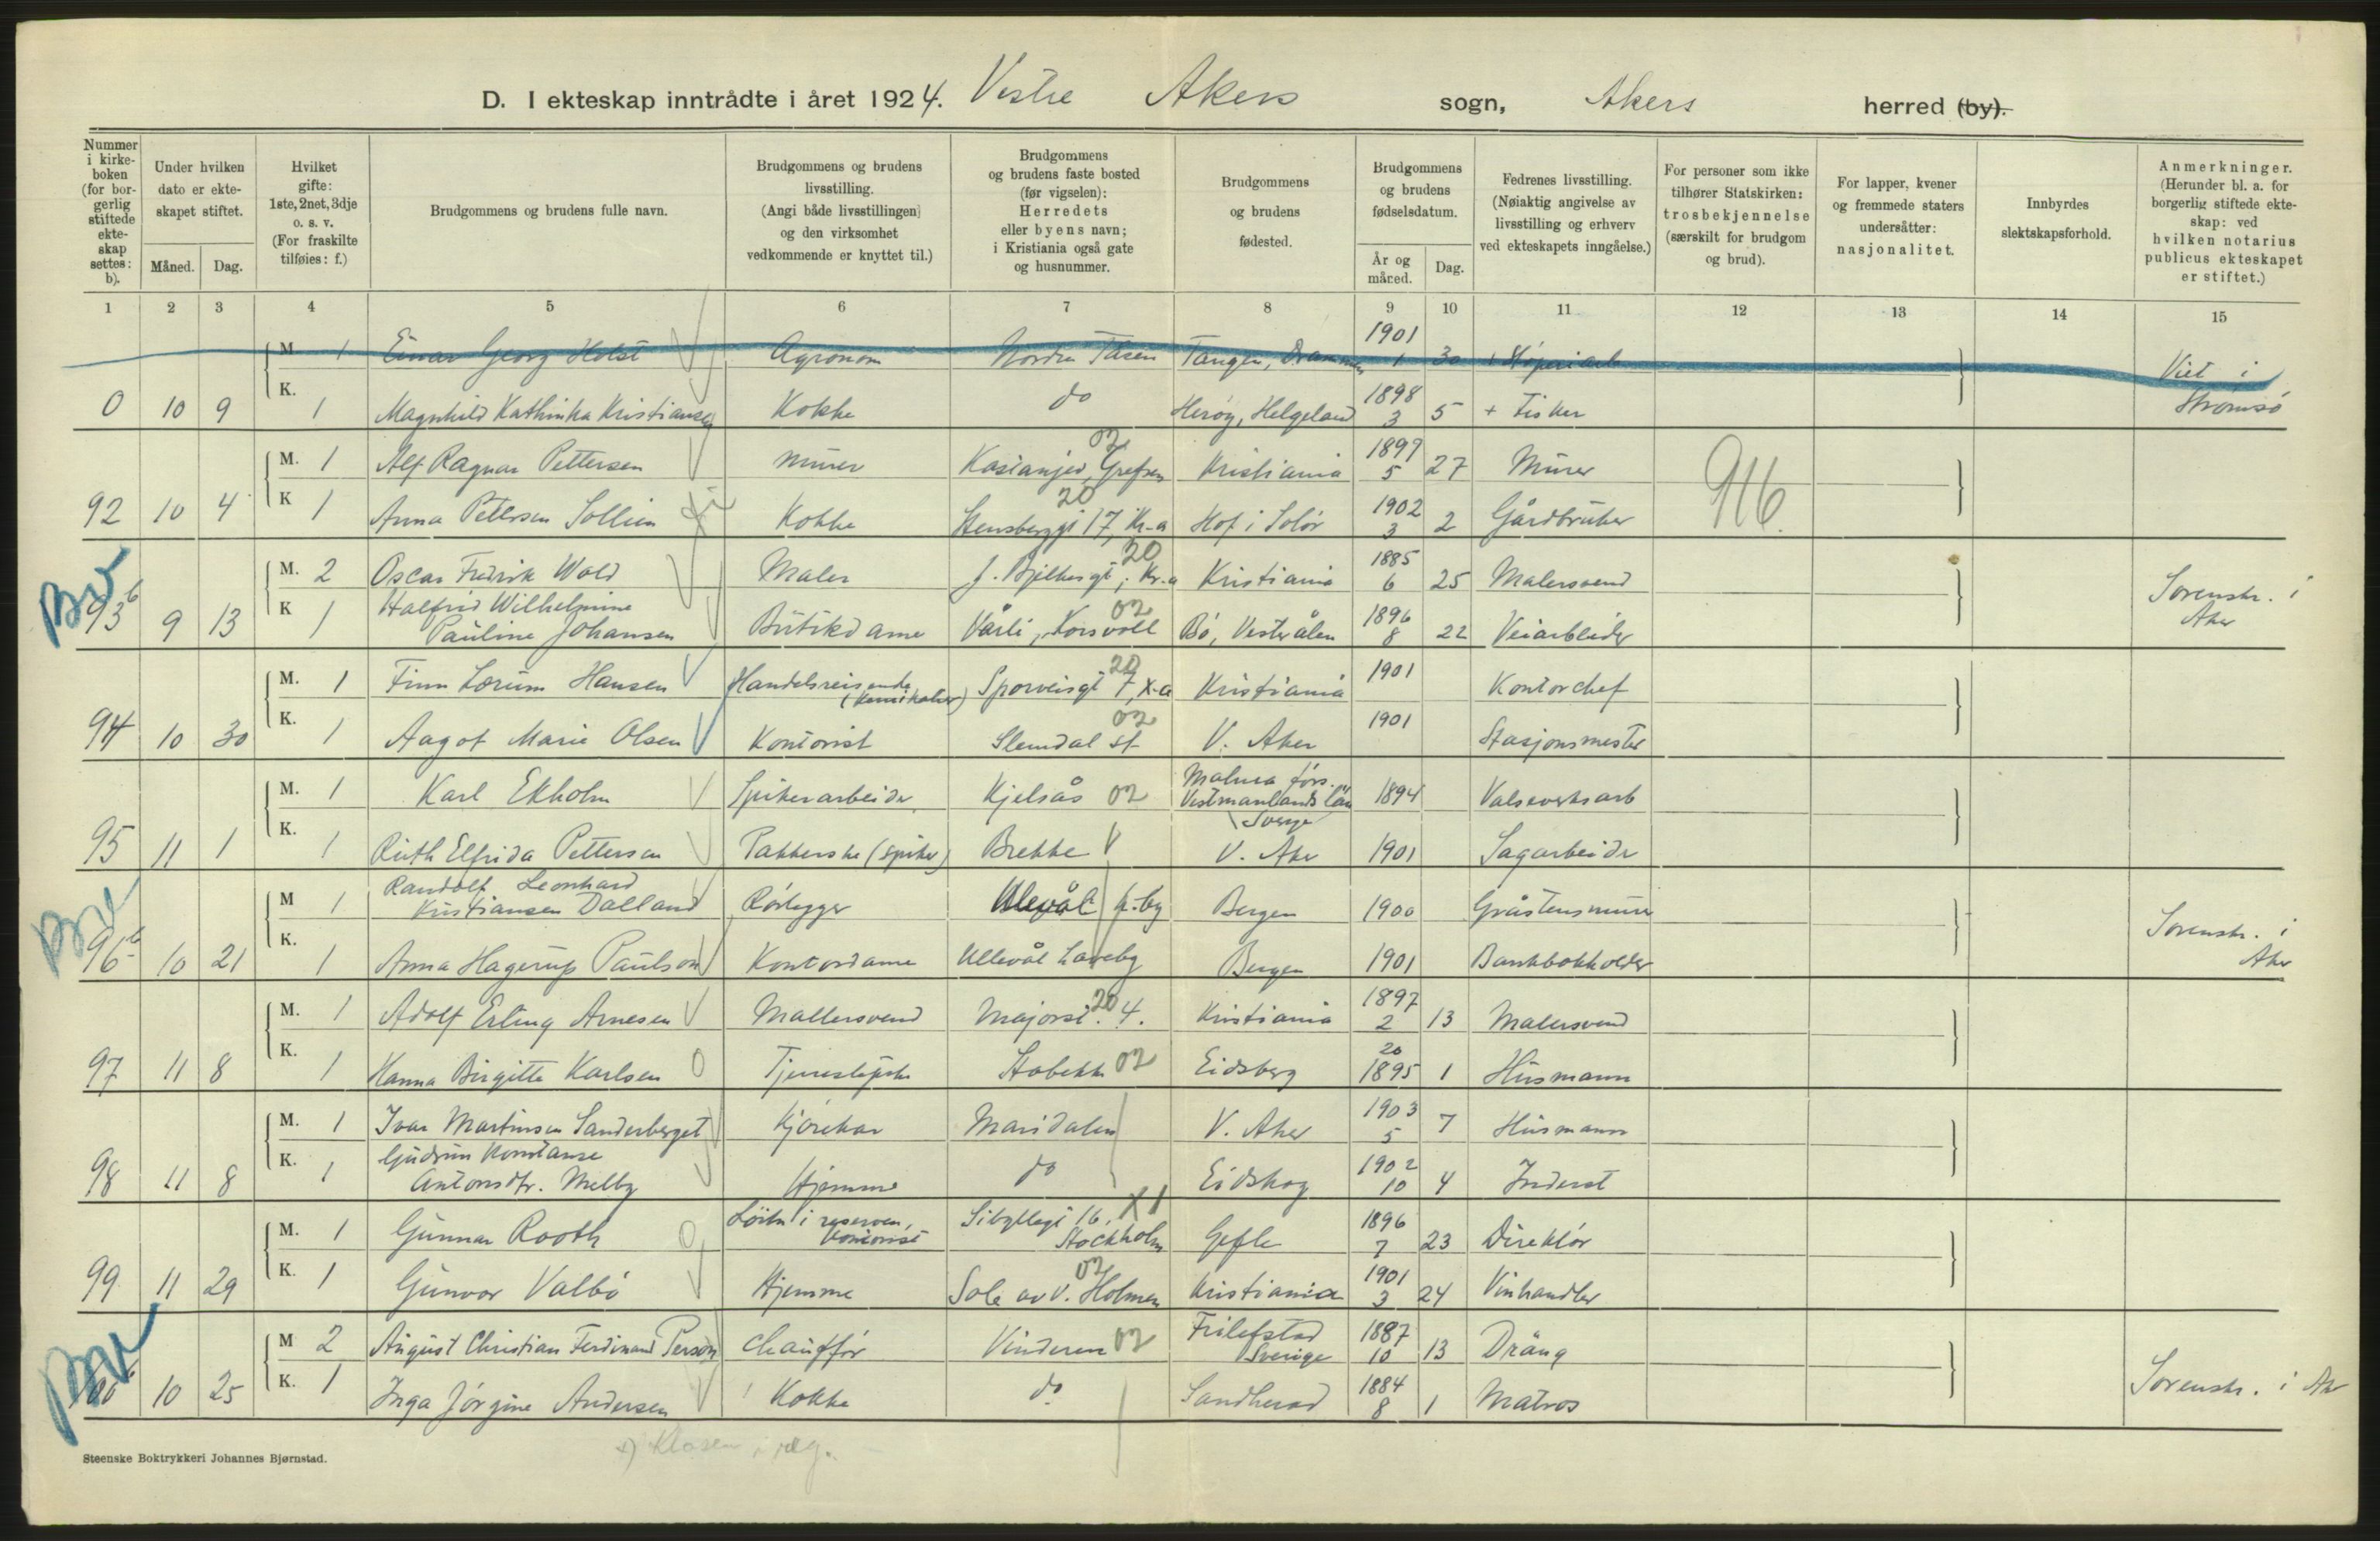 D. I ekteskap inntrådte i året 1924. Vestre Akers sogn, Akers herred (by).
Nummer i kirkeboken (for borgerlig stiftede ekteskap settes: b).
Under hvilken dato er ekteskapet stiftet.
Måned. Dag.
Hvilket gifte: 1ste, 2net, 3dje o. s. v. (For fraskilte tilføies: f.)
Brudgommens og brudens fulle navn.
Brudgommens og brudens livsstilling. (Angi både livsstillingen og den virksomhet vedkommende er knyttet til.)
Brudgommens og brudens faste bosted (før vigselen): Herredets eller byens navn; i Kristiania også gate og husnummer.
Brudgommens og brudens fødested.
Brudgommens og brudens fødselsdatum.
År og måned. Dag.
Fedrenes livsstilling. (Nøiaktig angivelse av livsstilling og erhverv ved ekteskapets inngåelse.)
For personer som ikke tilhører Statskirken: trosbekjennelse (særskilt for brudgom og brud).
For lapper, kvener og fremmede staters undersåtter: nasjonalitet.
Innbyrdes slektskapsforhold.
Anmerkninger. (Herunder bl. a. for borgerlig stiftede ekteskap: ved hvilken notarius publicus ekteskapet er stiftet.)
1 2 3 4 5 6 7 8 9 10 11 12 13 14 15
M 1 Einar Georg Holst Agronom Nordre Tåsen Tangen, Drammen 1901 1 30 Viet i
0 10 9 K. 1 Magnhild Kathinka Kristiansen Kokke do Herøy, Helgeland 1898 3 5 + Fisker Strømsø
M. 1 Alf Ragnar Pettersen Murer Kastanjev, Grefsen 02 Kristiania 1897 5 27 Murer
92 10 4 K 1 Anna Pettersen Sollien Kokke Stensberggt 17, Kr-a 20 Hof i Solør 1902 3 2 Gårdbruker 916
M. 2 Oscar Fredrik Wold Maler J. Bjelkesgt, Kr-a 20 Kristiania 1885 6 25 Malersvend Sorenskr. i
93 b 9 13 K 1 Halfrid Wilhelmine Pauline Johansen Butikdame Vårli, Korsvoll 02 Bö, Vesterålen 1896 8 22 Veiarbeider Aker
M. 1 Finn Lorum Hansen Handelsreisende (Kemikalier) Sporveisgt 7, K-a 20 Kristiania 1901 Kontorchef
94 10 30 K. 1 Aagot Marie Olsen Kontorist Slemdal st 02 V. Aker 1901 Stasjonsmester
M. 1 Karl Ekholm Spikerarbeider Kjelsås 02 Malma förs. Vestmanlands län Sverge 1894 Valseverksarb
95 11 1 K. 1 Ruth Elfrida Pettersen Pakkerske (spiker) Brekke V. Aker 1901 Sagarbeider
M 1 Randolf Leonhard Kristiansen Dalland Rörlegger Ulevål h.-by Bergen 1900 Gråstensmurer Sorenskr. i
96 b 10 21 K. 1 Anna Hagerup Paulson Kontordame Ullevål Haveby Bergen 1901 Bankbokholder Aker
M. 1 Adolf Erling Arnesen Mallersvend Majorst. 4. 20 Kristiania 1897 2 13 Malersvend
97 11 8 K. 1 Hanna Birgitte Karlsen Tjenestepike Stabekk 02 Eidsberg 20 1895 1 Husmann
M. 1 Ivar Martinsen Sanderberget Kjörekar Maridalen V. Aker 1903 5 7 Husmann
98 11 8 K. 1 Gudrun Konstanse Antonsdtr. Melby Hjemme do Eidskog 1902 10 4 Inderst
M. 1 Gunnar Rooth Löitn i reserven, Kontorist Sibyllegt 16, Stockholm X1 Gefle 1896 7 23 Direktör
99 11 29 K. 1 Gunvor Valbö Hjemme Sole av V. Holmen 02 Kristiania 1901 3 24 Vinhandler
M 2 August Christian Ferdinand Person Chauffør Vinderen 02 Frilefstad Sverige 1887 10 13 Dräng
100 b 10 25 K. 1 Inga Jörgine Andersen Kokke do. Sandherad 1884 8 1 Matros Sorenskr. i Ak
x) Klasen i reg.
Steenske Boktrykkeri Johannes Bjørnstad.